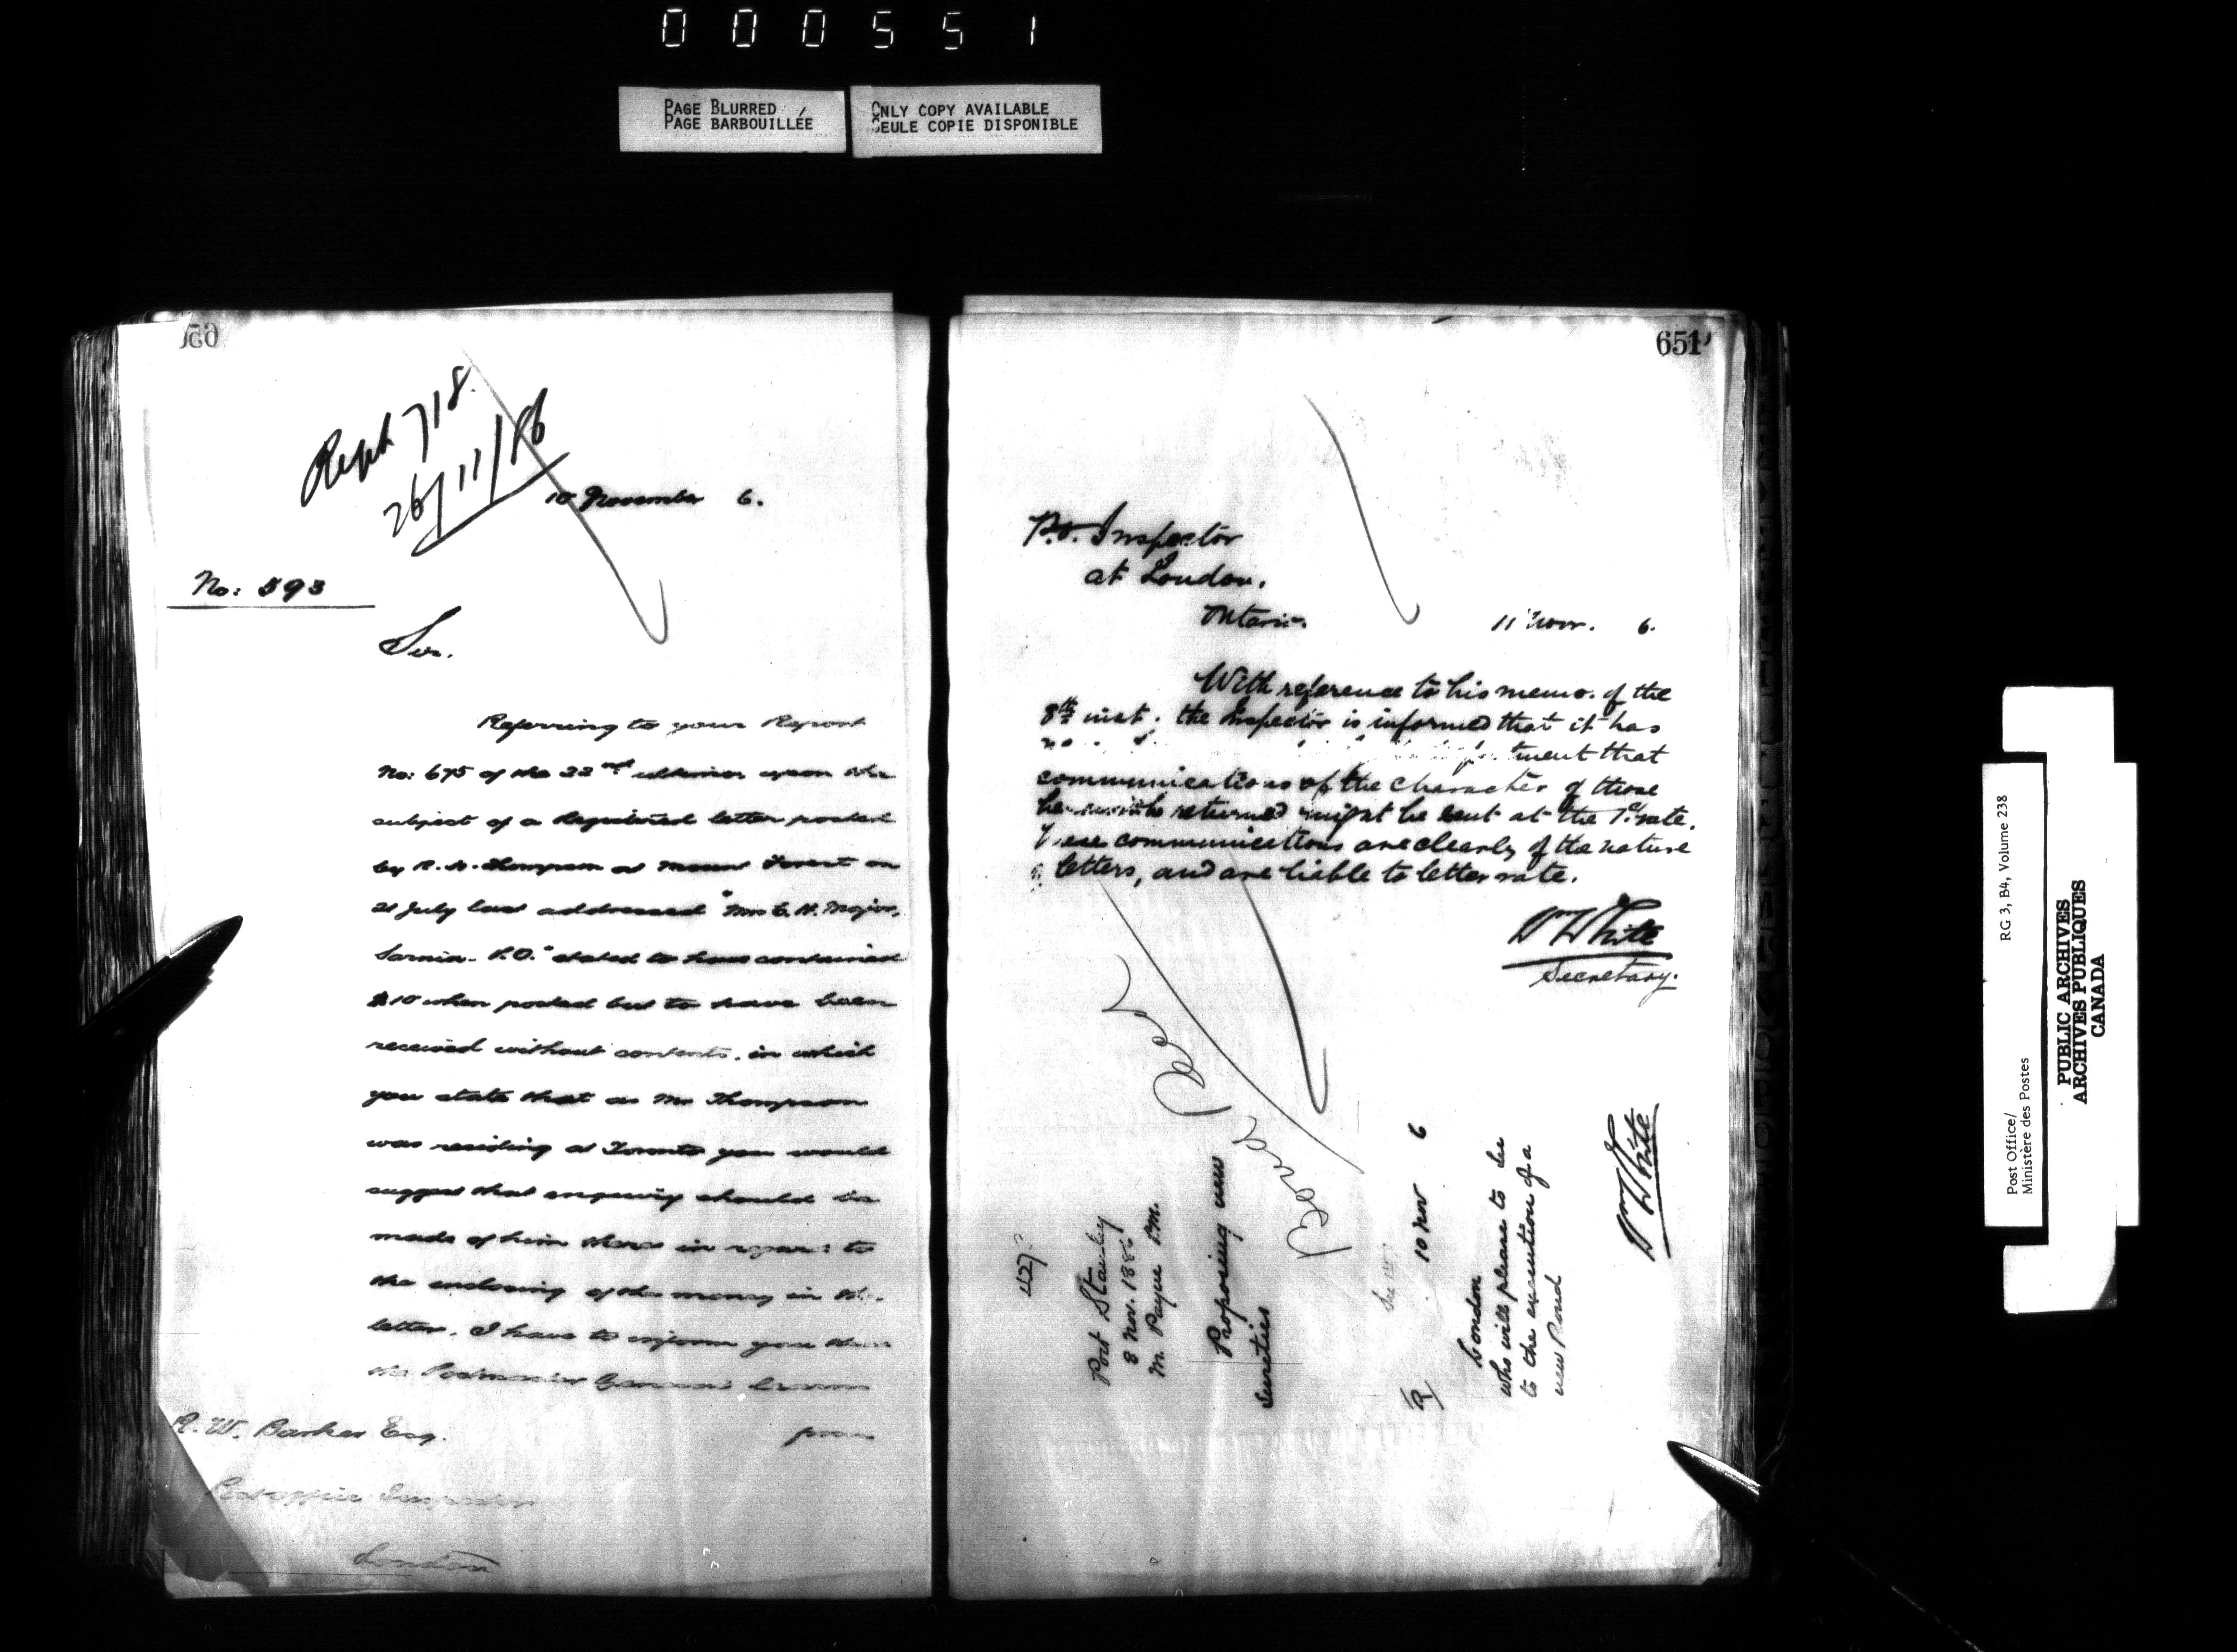 000551
PAGE BLURRED
PAGE BARBOUILLÉE
ONLY COPY AVAILABLE
SEULE COPIE DISPONIBLE
650
Reph 718.
26/11/86
10 November 6.
No: 593
Sir.
Referring to your Report
No: 675 of the 22nd ultimo upon the
subject of a Registered letter posted
by R. H. Thompson at Mount Forest on
21 July last addressed "Mrs E. H. Major,
Sarnia - P.O." stated to have contained
$10 when posted but to have been
received without contents, in which
you state that as Mr Thompson
was residing at Toronto you would
suggest that enquiry should be
made of him there in regard to
the enclosing of the money in the
letter. I have to inform you that
the Postmaster General
from
R. W. Barker Esq.
Post office Inspector
London
651
P.O. Inspector
at London.
Ontario.
11 Novr. 6.
With reference to his memo. of the
8th inst. the Inspector is informed that it has
no that
communications of the character of those
herewith returned might be sent at the 1c rate.
These communications are clearly of the nature
of letters, and are liable to letter rate.
Wm White
Secretary.
Bond Recd
427
Port Stanley
8 Nov. 1886
M. Payne P.M.
Proposing new
sureties
10 Nov 6
London
who will please to see
to the execution of a
new Bond
Wm White
Post Office/
Ministère des Postes
RG 3, B4, Volume 238
PUBLIC ARCHIVES
ARCHIVES PUBLIQUES
CANADA